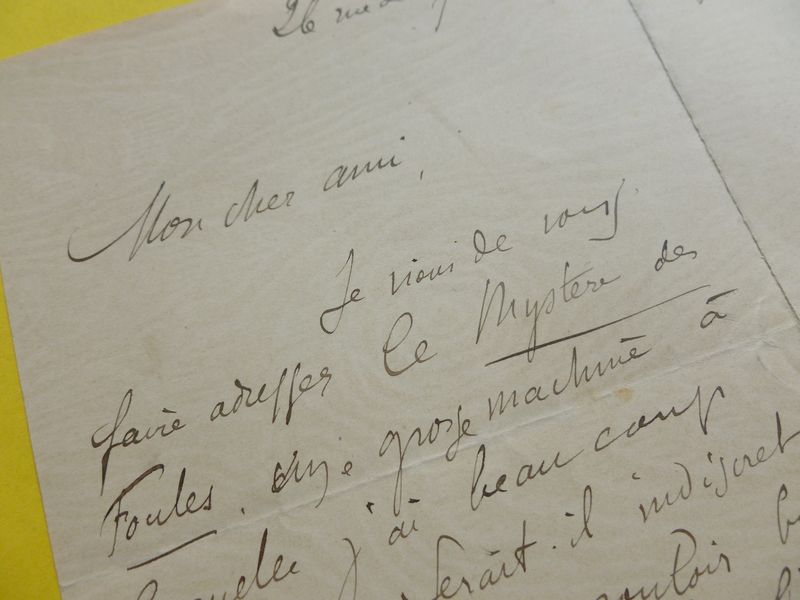 26 rue de
Mon cher ami,
Je viens de vous
faire adresser Le Mystère des
Foules, une grosse machine à
laquelle j'ai beaucoup
serait-il indiscret
vouloir